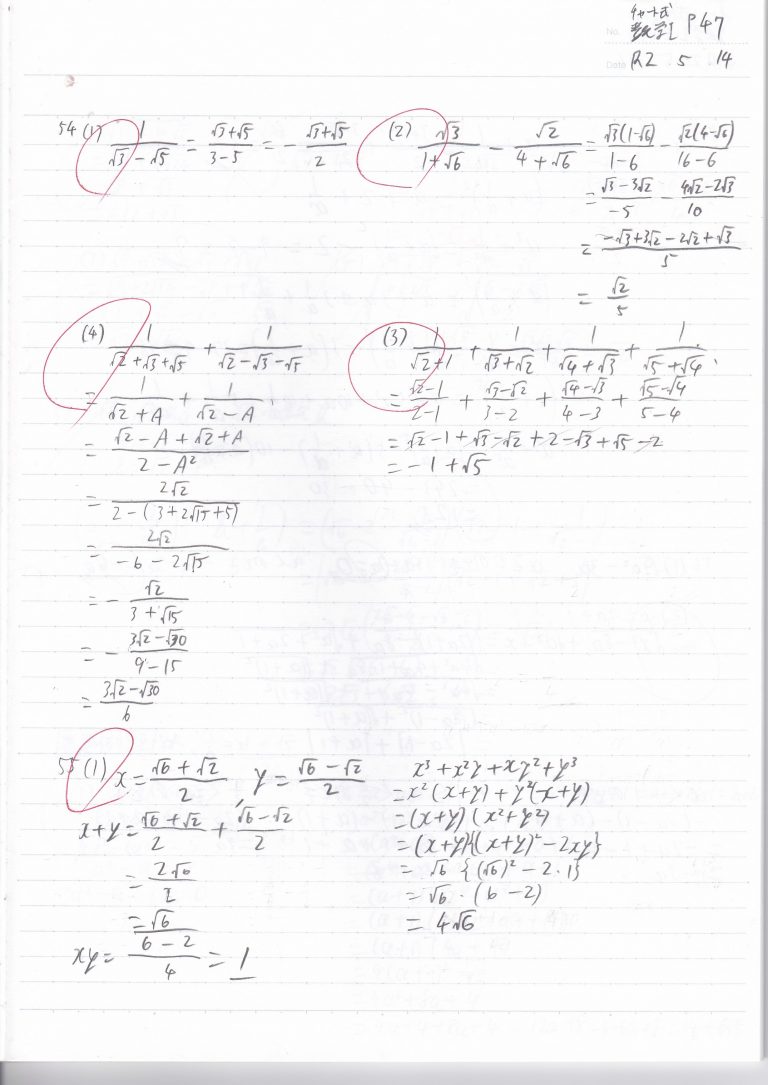 チャート式
No. 数学I P47
Date R2 5 14
54 (1) 1/(√3-√5) = (√3+√5)/(3-5) = -(√3+√5)/2
(2) √3/(1+√6) - √2/(4+√6) = √3(1-√6)/(1-6) - √2(4-√6)/(16-6)
= (√3-3√2)/(-5) - (4√2-2√3)/10
= (-√3+3√2-2√2+√3)/5
= √2/5
(4) 1/(√2+√3+√5) + 1/(√2-√3-√5)
= 1/(√2+A) + 1/(√2-A)
= (√2-A+√2+A)/(2-A²)
= 2√2/(2-(3+2√15+5))
= 2√2/(-6-2√15)
= -√2/(3+√15)
= -(3√2-√30)/(9-15)
= (3√2-√30)/6
(3) 1/(√2+1) + 1/(√3+√2) + 1/(√4+√3) + 1/(√5+√4)
= (√2-1)/(2-1) + (√3-√2)/(3-2) + (√4-√3)/(4-3) + (√5-√4)/(5-4)
= √2-1+√3-√2+2-√3+√5-2
= -1+√5
55 (1) x = (√6+√2)/2, y = (√6-√2)/2
x+y = (√6+√2)/2 + (√6-√2)/2
= 2√6/2
= √6
xy = (6-2)/4 = 1
x³+x²y+xy²+y³
= x²(x+y)+y²(x+y)
= (x+y)(x²+y²)
= (x+y){(x+y)²-2xy}
= √6{(√6)²-2·1}
= √6·(6-2)
= 4√6